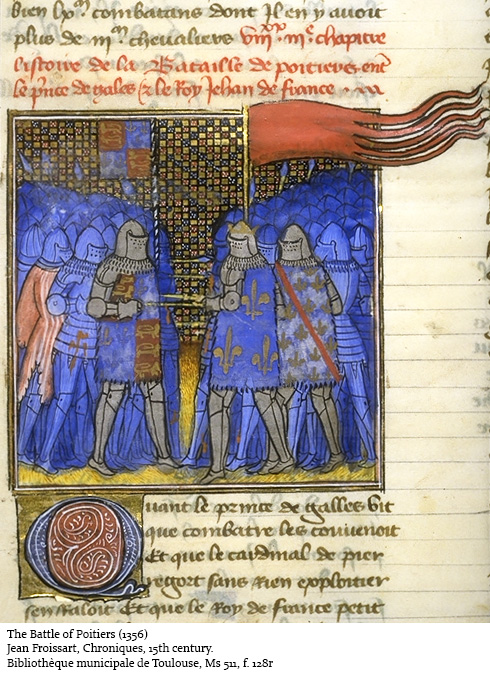 bien lx.m combatans dont il en y avoit
plus de iii.m chevaliers viii.xx iii.e chapitre
listoire de la Bataille de poitiers entre
le prince de gales & le Roy Jehan de france
Quant le prince de Galles vit
que combatre les convenoit
Et que le cardinal de pier
regort sans rien exploitier
sen raloit Et que le Roy de france petit
The Battle of Poitiers (1356)
Jean Froissart, Chroniques, 15th century.
Bibliothèque municipale de Toulouse, Ms 511, f. 128r